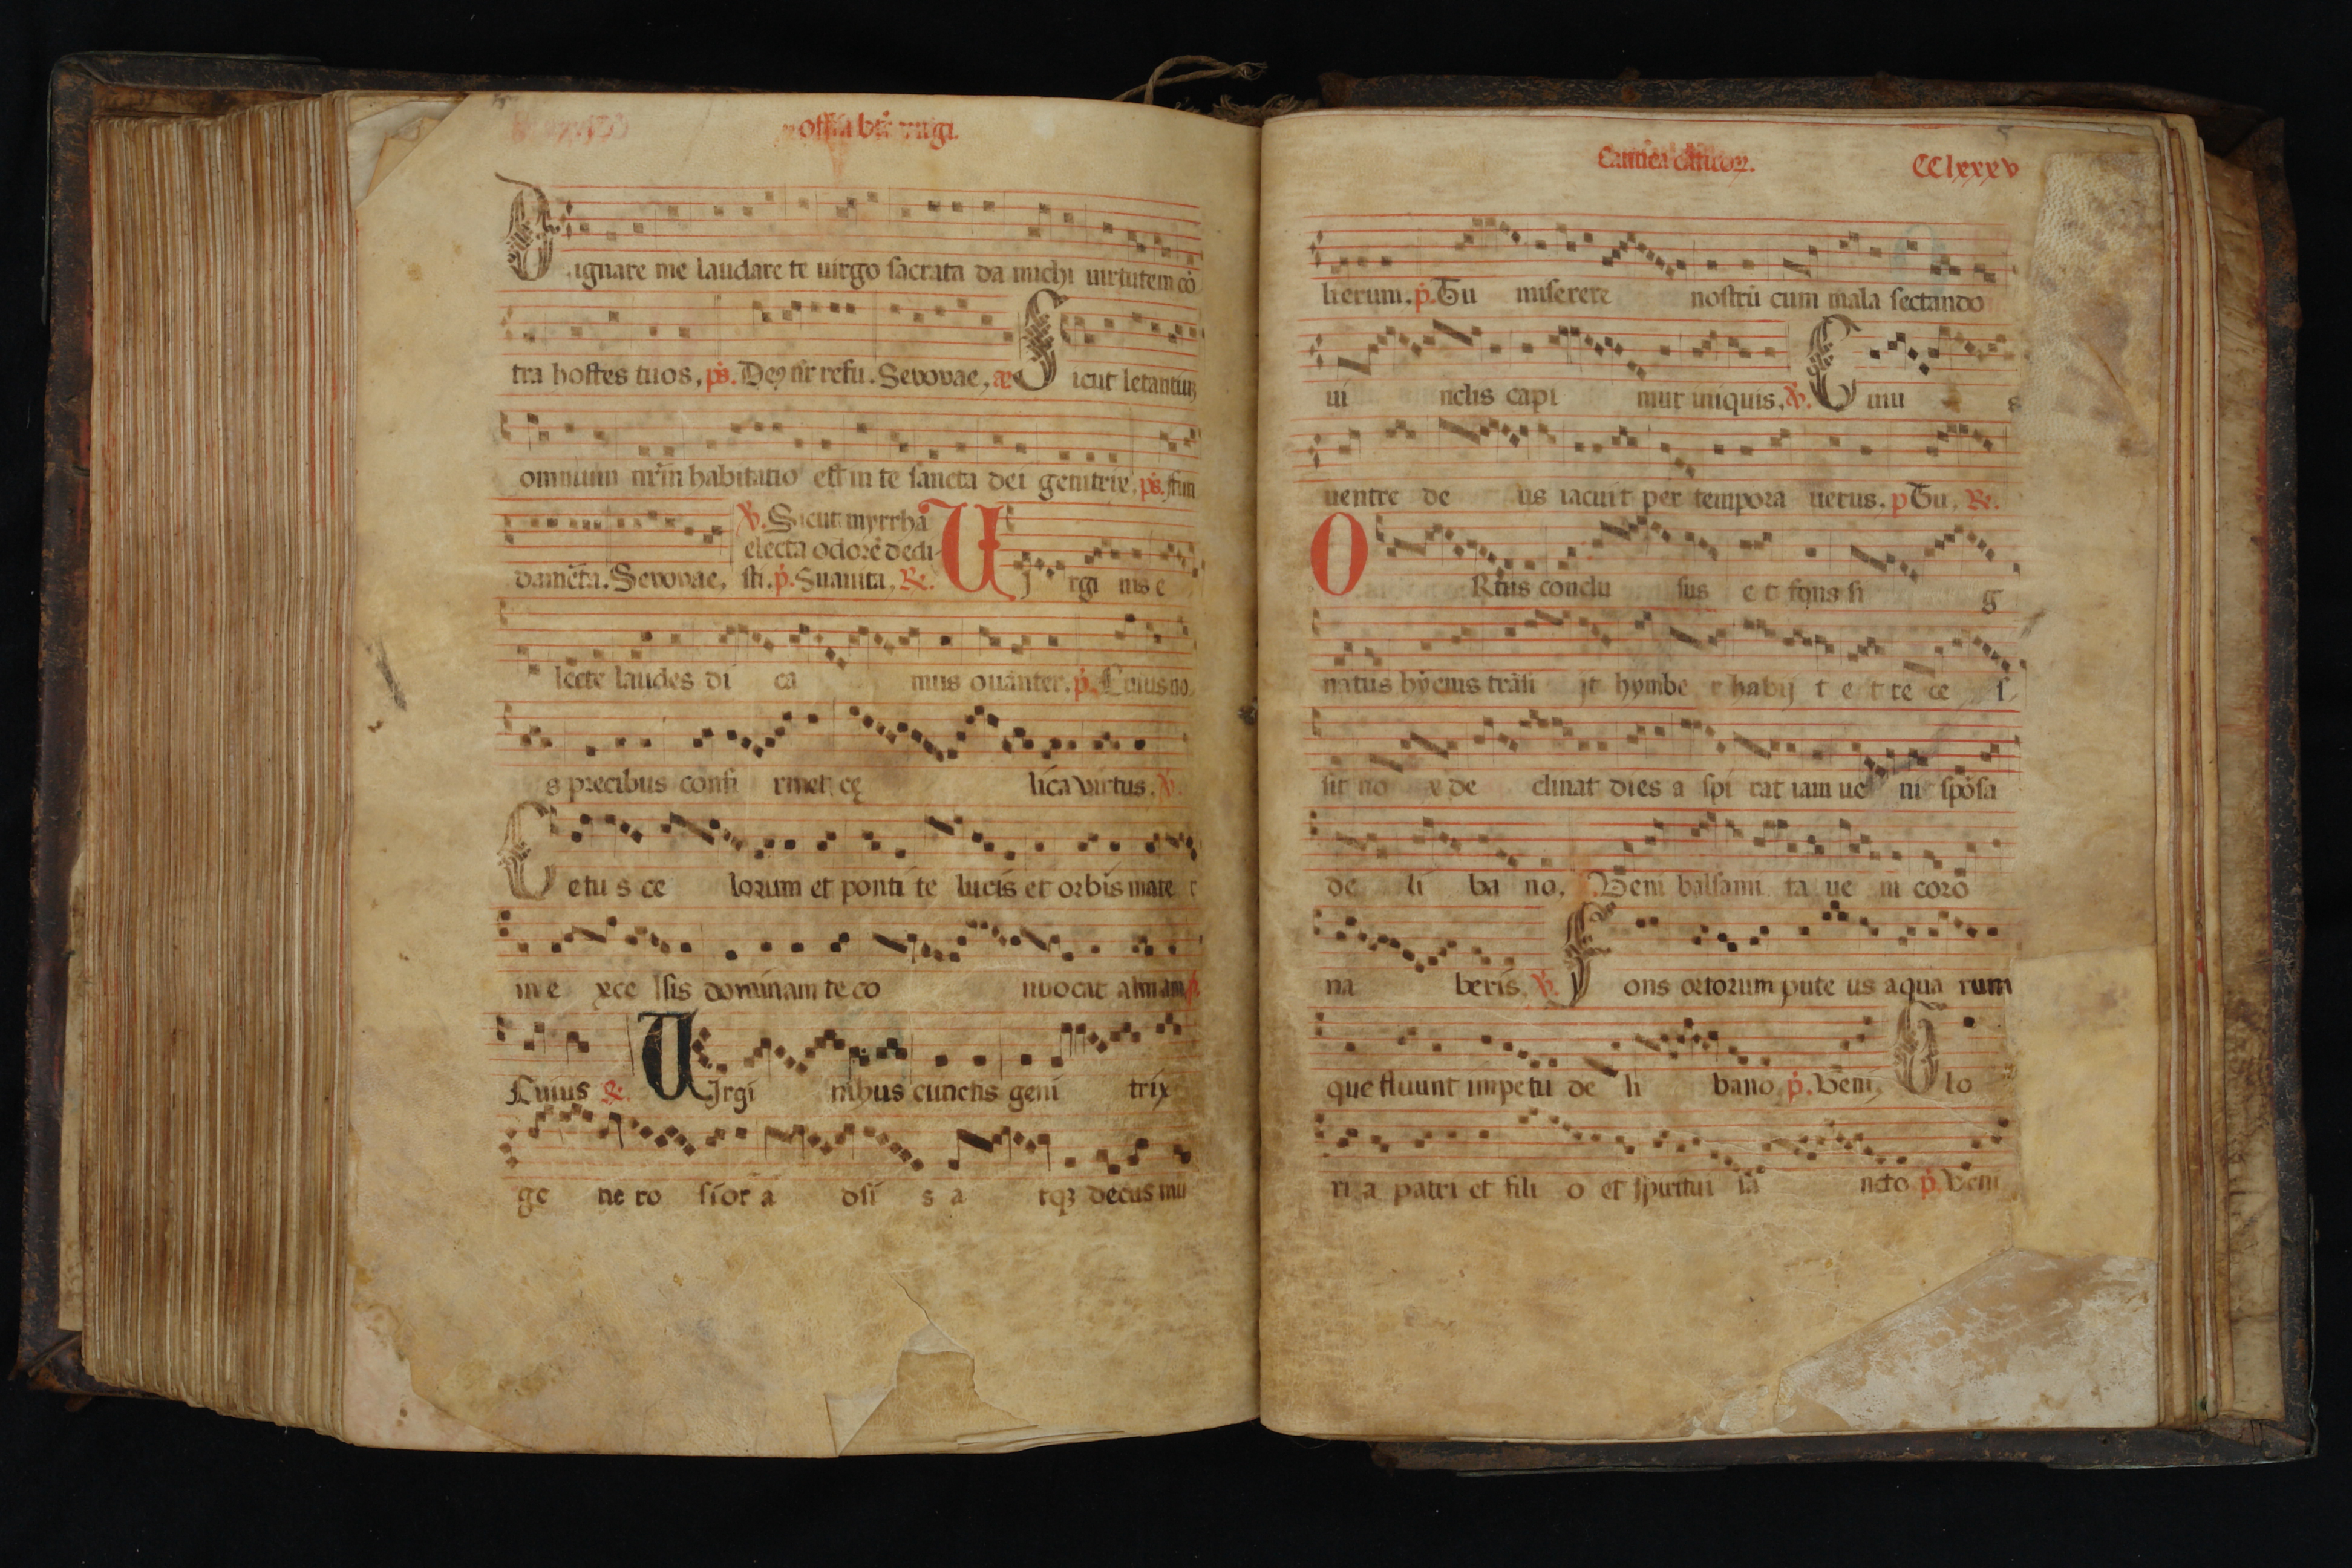 offī̄a btē virgi.
Dignare me laudare te uirgo sacrata da michi uirtutem cō
tra hostes tuos, ps. Deꝯ nr̄ refu. Seuouae, a Sicut letantiuꝫ
omnium nr̄m habitatio est in te sancta dei genitrix, ps. ffun
℣. Sicut myrrha
electa odorē dedi
damēta. Seuouae, sti. p. Suauita, ℞. UJrgi nis e
lecte laudes di ca mus ouanter. p. Cuius no
s precibus confi rmet cę lica virtus. ℣.
Cetu s ce lorum et ponti te lucis et orbis mate r
in e xce lsis dominam te co nuocat almam p
Cuius ℞. UJrgi nibus cunctis geni trix
ge ne ro sior a dsi s a tqꝫ decus mu
Cantica canticoꝝ. CClxxxv
lierum. p. Tu miserere nostrū cum mala sectando
ui nclis capi mur iniquis, ℣. Cuiu s
uentre de us iacuit per tempora uerus. p Tu, ℞.
ORtus conclu sus e t fons si g
natus hyems trāsi jt hymbe r habij t e t re ce s
sit no x de clinat dies a spi rat iam ue ni spōsa
de li ba no, Veni balsami ta ue ni coro
na beris ℣. Fons ortorum pute us aqua rum
que fluunt impetu de li bano p. Veni, Glo
ri a patri et fili o et spiritui sa ncto p. Veni